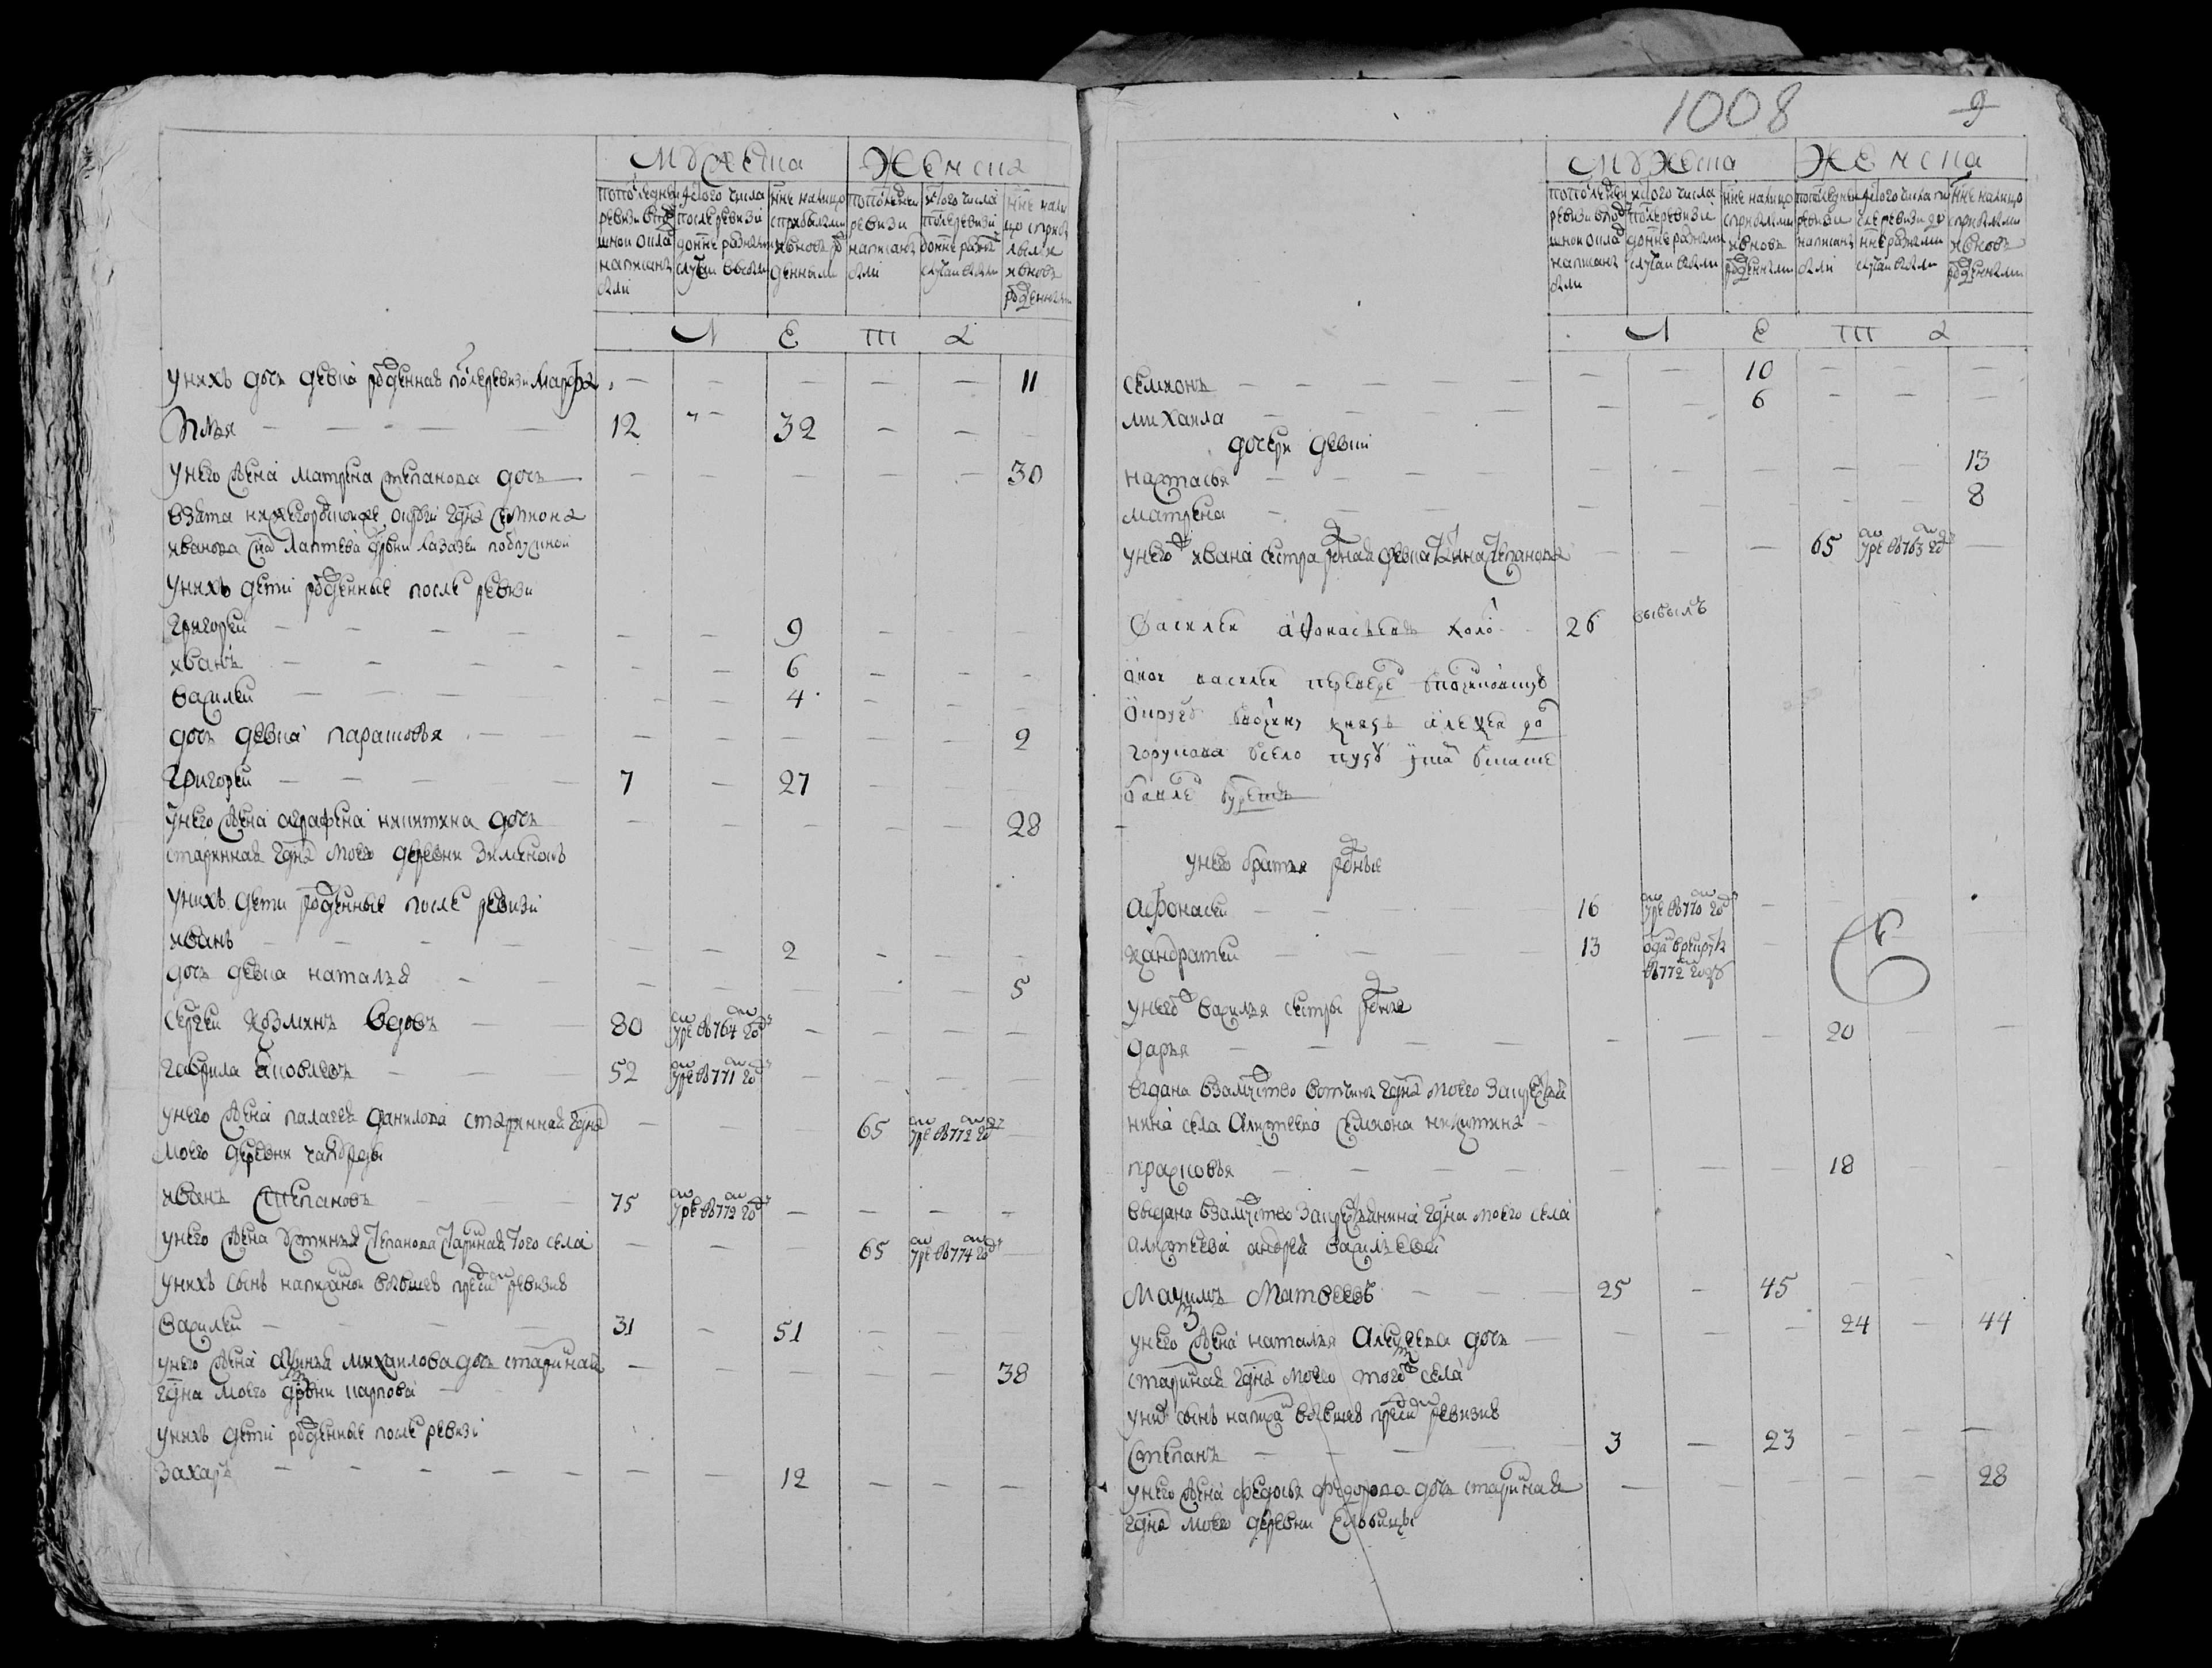 Мужеска Женска
по последней ревизи в подушной оклад написаны были
ис того числа после ревизи до ныне разными случаи выбыли
ныне налицо с прибылыми и вновь рожденными
по последней ревизи написаны были
ис того числа после ревизи до ныне разными случаи выбыли
ныне налицо с прибылыми и вновь рожденными
Л Е Т А
у них дочь девка рожденная после ревизи Марфа — — — — — 11
Илья 12 — 32 — — —
у него жена Матрена Степанова дочь — — — — — 30
взята нижегородской округи гдна Семиона
Иванова сна Лаптева
у них дети рожденные после ревизи
Григорей — — 9 — —
Иванъ — — 6 — — —
Василей — — 4 — — —
дочь девка Парасковья — — — — — 2
Григорей 7 — 27 — — —
у него жена Аграфена Никитина дочь — — — — — 28
старинная гдна моего деревни
у них дети рожденные после ревизи
Иванъ — — 2 — — —
дочь девка Наталья — — — — — 5
Сергей Козминъ вдовъ 80 умре в 764 году — — — —
Гаврила Яковлевъ 52 умре в 771 году — — — —
у него жена Палагея Данилова старинная гдна — — — 65 умре в 772 году —
моего деревни
Иванъ Степановъ 75 умре в 772 году — — — —
у него жена Устинья Степанова старинная того села — — — 65 умре в 774 году —
у них сынъ написанной в бывшей пред сим ревизие
Василей 31 — 51 — — —
у него жена Аксинья Михаилова дочь старинная — — — — — 38
гдна моего деревни Карпова
у них дети рожденные после ревизи
Захаръ — — 12 — — —
1008 9
Мужеска Женска
по последней ревизи в подушной оклад написаны были
ис того числа после ревизи до ныне разными случаи выбыли
ныне налицо с прибылыми и вновь рожденными
по последней ревизи написаны были
ис того числа после ревизи до ныне разными случаи выбыли
ныне налицо с прибылыми и вновь рожденными
Л Е Т А
Семионъ — — 10 — — —
Михаила — — 6 — — —
дочери девки
Настасья — — — — — 13
Матрена — — — — — 8
у него ж Ивана сестра родная девка Анна Степанова — — — 65 умре в 763 году —
Василей Афонасьевъ холо 26 выбылъ
оной Василей переведе
округ вотчину князь Алексея
в село
у него братья родные
Афонасей 16 умре в 770 году —
Кандратей 13 одан в рекруты —
в 772 году
у него ж Василья сестры родные
Дарья — — — 20 — —
выдана в замуство вотчины гдна моего за крестья
нина села Алистеева Семиона Никитина
Прасковья — — — 18 —
выдана в замуство за крестьянина гдна моего села
Алистеева Андрея Васильева
Максимъ Матвеевъ 25 — 45 — —
у него жена Наталья Алексеева дочь — — — 24 — 44
старинная гдна моего того ж села
у них сынъ написан в бывшей пред сим ревизие
Степанъ 3 — 23 — — —
у него жена Федосья Федорова дочь старинная — — — — — 28
гдна моего деревни